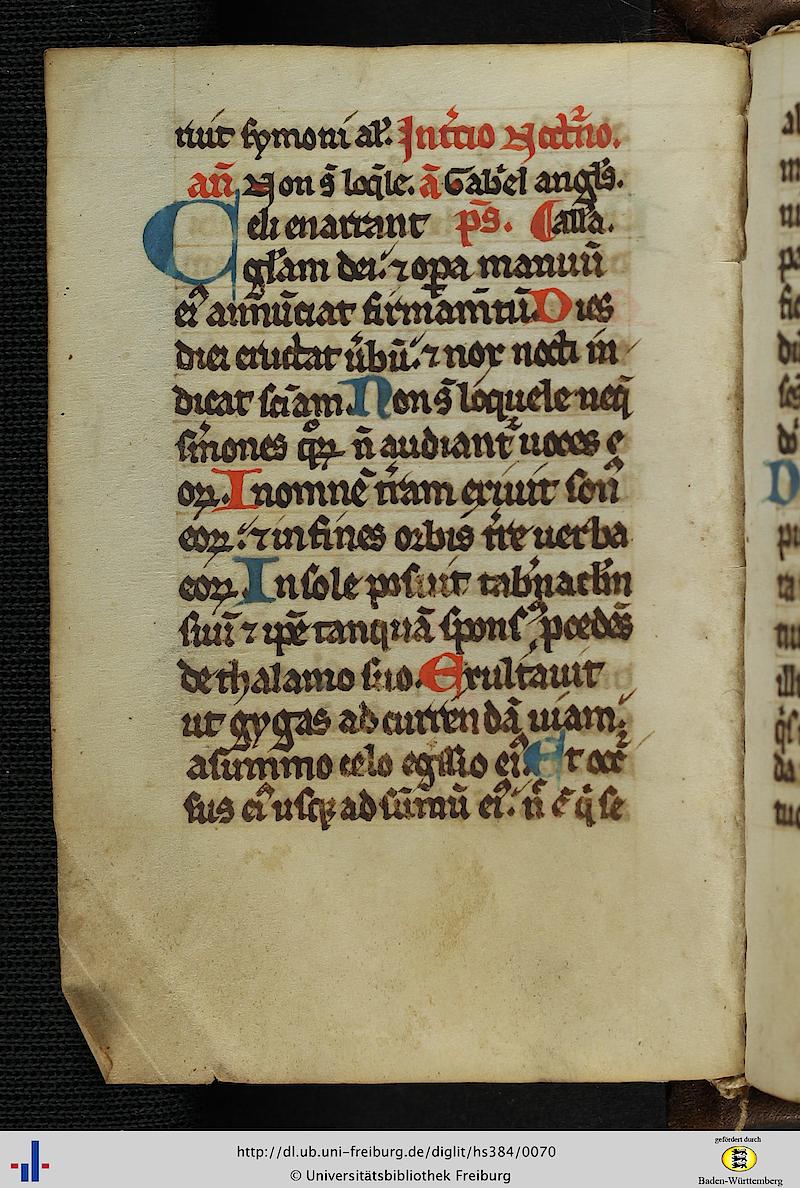 ruit symoni al'. In t'cio Noct'no.
an̄. Non s̄ loq̄le. ā Gab'el angl's.
Celi enarrant ps̄. Cassia.
gl'am dei. ⁊ op̲a manuū
ei⁹ annūciat firmam̄tū. Dies
diei eructat ūbū. ⁊ nox nocti in
dicat sc̄iam. Non s̄ loquele neq̄
s'mones q̊ꝝ n̄ audiant᷑ uoces e
oꝝ. In omnē t'ram exiuit son⁹
eoꝝ. ⁊ in fines orbis t're uerba
eoꝝ. In sole posuit tab'nacl'm
suū ⁊ ip̄e tanquā spons⁹ p̲cedēs
de thalamo suo. Exultauit
ut gygas ad currendā uiam.
a summo celo egssio ei⁹. Et occ᷑
sus ei⁹ usqꝫ ad sūmū ei⁹. n̄ ē q̄ se
http://dl.ub.uni-freiburg.de/diglit/hs384/0070
© Universitätsbibliothek Freiburg
gefördert durch
Baden-Württemberg